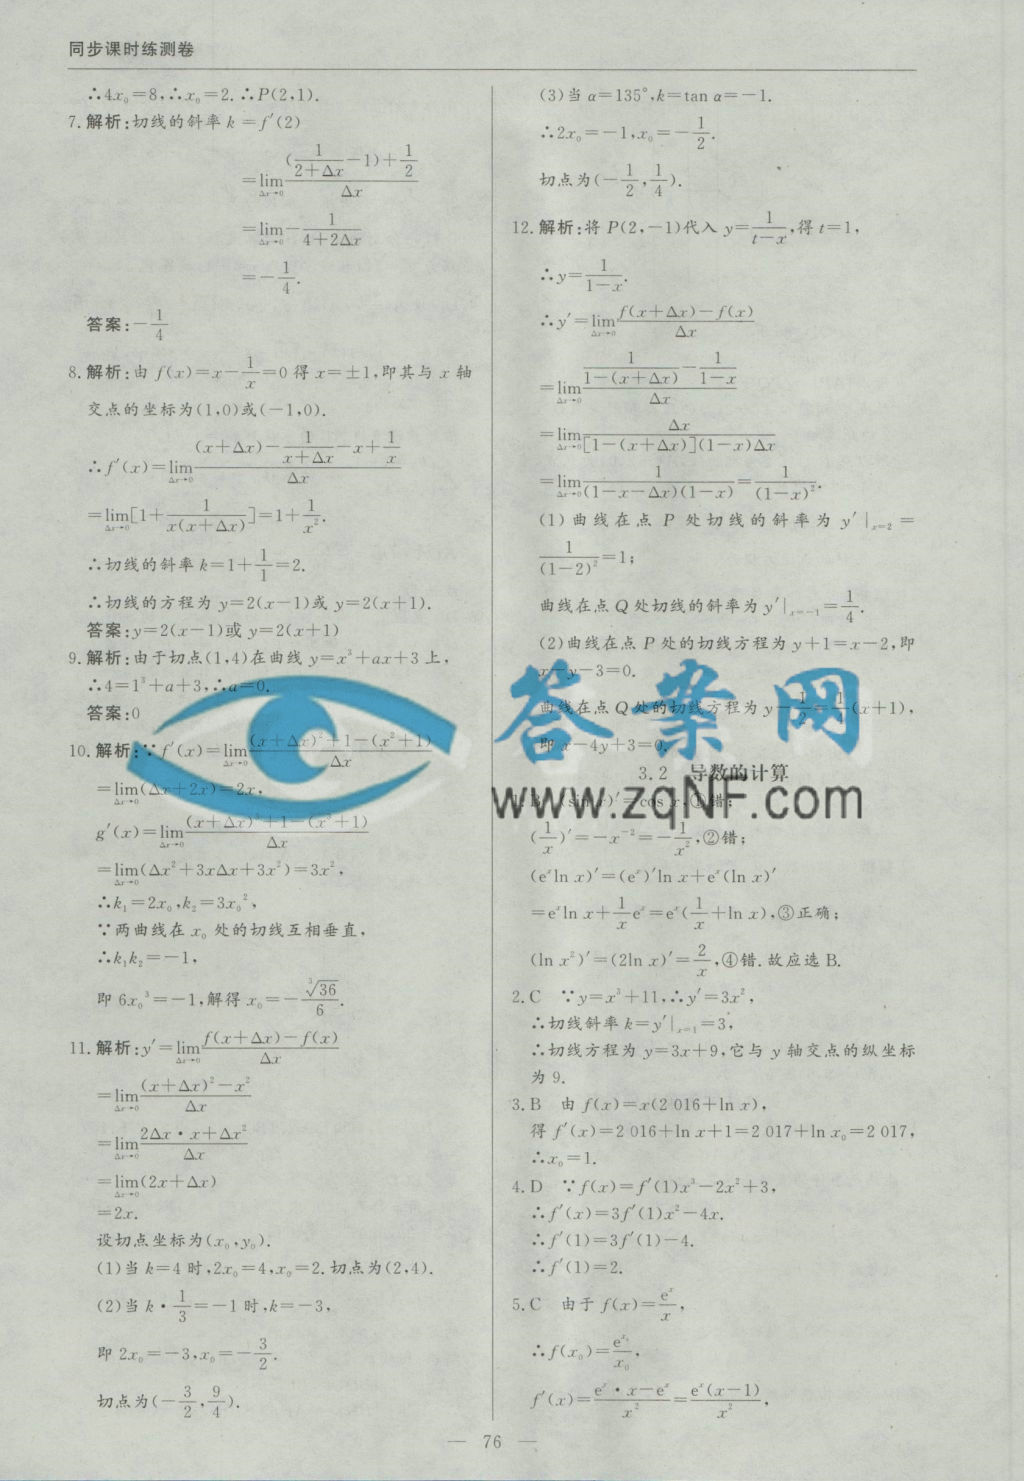 同步课时练测卷
∴4x₀=8,∴x₀=2.∴P(2,1).
7.解析:切线的斜率k=f′(2)
=lim(Δx→0) ((1/(2+Δx)-1)+1/2)/Δx
=lim(Δx→0) -1/(4+2Δx)
=-1/4.
答案:-1/4
8.解析:由f(x)=x-1/x=0得x=±1,即其与x轴
交点的坐标为(1,0)或(-1,0).
∴f′(x)=lim(Δx→0) ((x+Δx)-1/(x+Δx)-x+1/x)/Δx
=lim(Δx→0)[1+1/(x(x+Δx))]=1+1/x².
∴切线的斜率k=1+1/1=2.
∴切线的方程为y=2(x-1)或y=2(x+1).
答案:y=2(x-1)或y=2(x+1)
9.解析:由于切点(1,4)在曲线y=x³+ax+3上,
∴4=1³+a+3,∴a=0.
答案:0
10.解析:∵f′(x)=lim(Δx→0) ((x+Δx)²+1-(x²+1))/Δx
=lim(Δx→0)(Δx+2x)=2x,
g′(x)=lim(Δx→0) ((x+Δx)³+1-(x³+1))/Δx
=lim(Δx→0)(Δx²+3xΔx+3x²)=3x²,
∴k₁=2x₀,k₂=3x₀²,
∵两曲线在x₀处的切线互相垂直,
∴k₁k₂=-1,
即6x₀³=-1,解得x₀=-∛36/6.
11.解析:y′=lim(Δx→0) (f(x+Δx)-f(x))/Δx
=lim(Δx→0) ((x+Δx)²-x²)/Δx
=lim(Δx→0) (2Δx·x+Δx²)/Δx
=lim(Δx→0)(2x+Δx)
=2x.
设切点坐标为(x₀,y₀).
(1)当k=4时,2x₀=4,x₀=2.切点为(2,4).
(2)当k·1/3=-1时,k=-3,
即2x₀=-3,x₀=-3/2.
切点为(-3/2,9/4).
(3)当α=135°,k=tan α=-1.
∴2x₀=-1,x₀=-1/2.
切点为(-1/2,1/4).
12.解析:将P(2,-1)代入y=1/(t-x),得t=1,
∴y=1/(1-x).
∴y′=lim(Δx→0) (f(x+Δx)-f(x))/Δx
=lim(Δx→0) (1/(1-(x+Δx))-1/(1-x))/Δx
=lim(Δx→0) Δx/([1-(x+Δx)](1-x)Δx)
=lim(Δx→0) 1/((1-x-Δx)(1-x))=1/(1-x)².
(1)曲线在点P处切线的斜率为y′|x=2=
1/(1-2)²=1;
曲线在点Q处切线的斜率为y′|x=-1=1/4.
(2)曲线在点P处的切线方程为y+1=x-2,即
x-y-3=0.
曲线在点Q处的切线方程为y-1/2=1/4(x+1),
即x-4y+3=0.
3.2 导数的计算
1.B (sin x)′=cos x,①错;
(1/x)′=-x⁻²=-1/x²,②错;
(eˣln x)′=(eˣ)′ln x+eˣ(ln x)′
=eˣln x+1/x eˣ=eˣ(1/x+ln x),③正确;
(ln x²)′=(2ln x)′=2/x,④错.故应选B.
2.C ∵y=x³+11,∴y′=3x²,
∴切线斜率k=y′|x=1=3,
∴切线方程为y=3x+9,它与y轴交点的纵坐标
为9.
3.B 由f(x)=x(2 016+ln x),
得f′(x)=2 016+ln x+1=2 017+ln x₀=2 017,
∴x₀=1.
4.D ∵f(x)=f′(1)x³-2x²+3,
∴f′(x)=3f′(1)x²-4x.
∴f′(1)=3f′(1)-4.
∴f′(1)=2.
5.C 由于f(x)=eˣ/x,
∴f(x₀)=eˣ⁰/x₀,
f′(x)=(eˣ·x-eˣ)/x²=eˣ(x-1)/x²,
答案网
www.zqNF.com
— 76 —